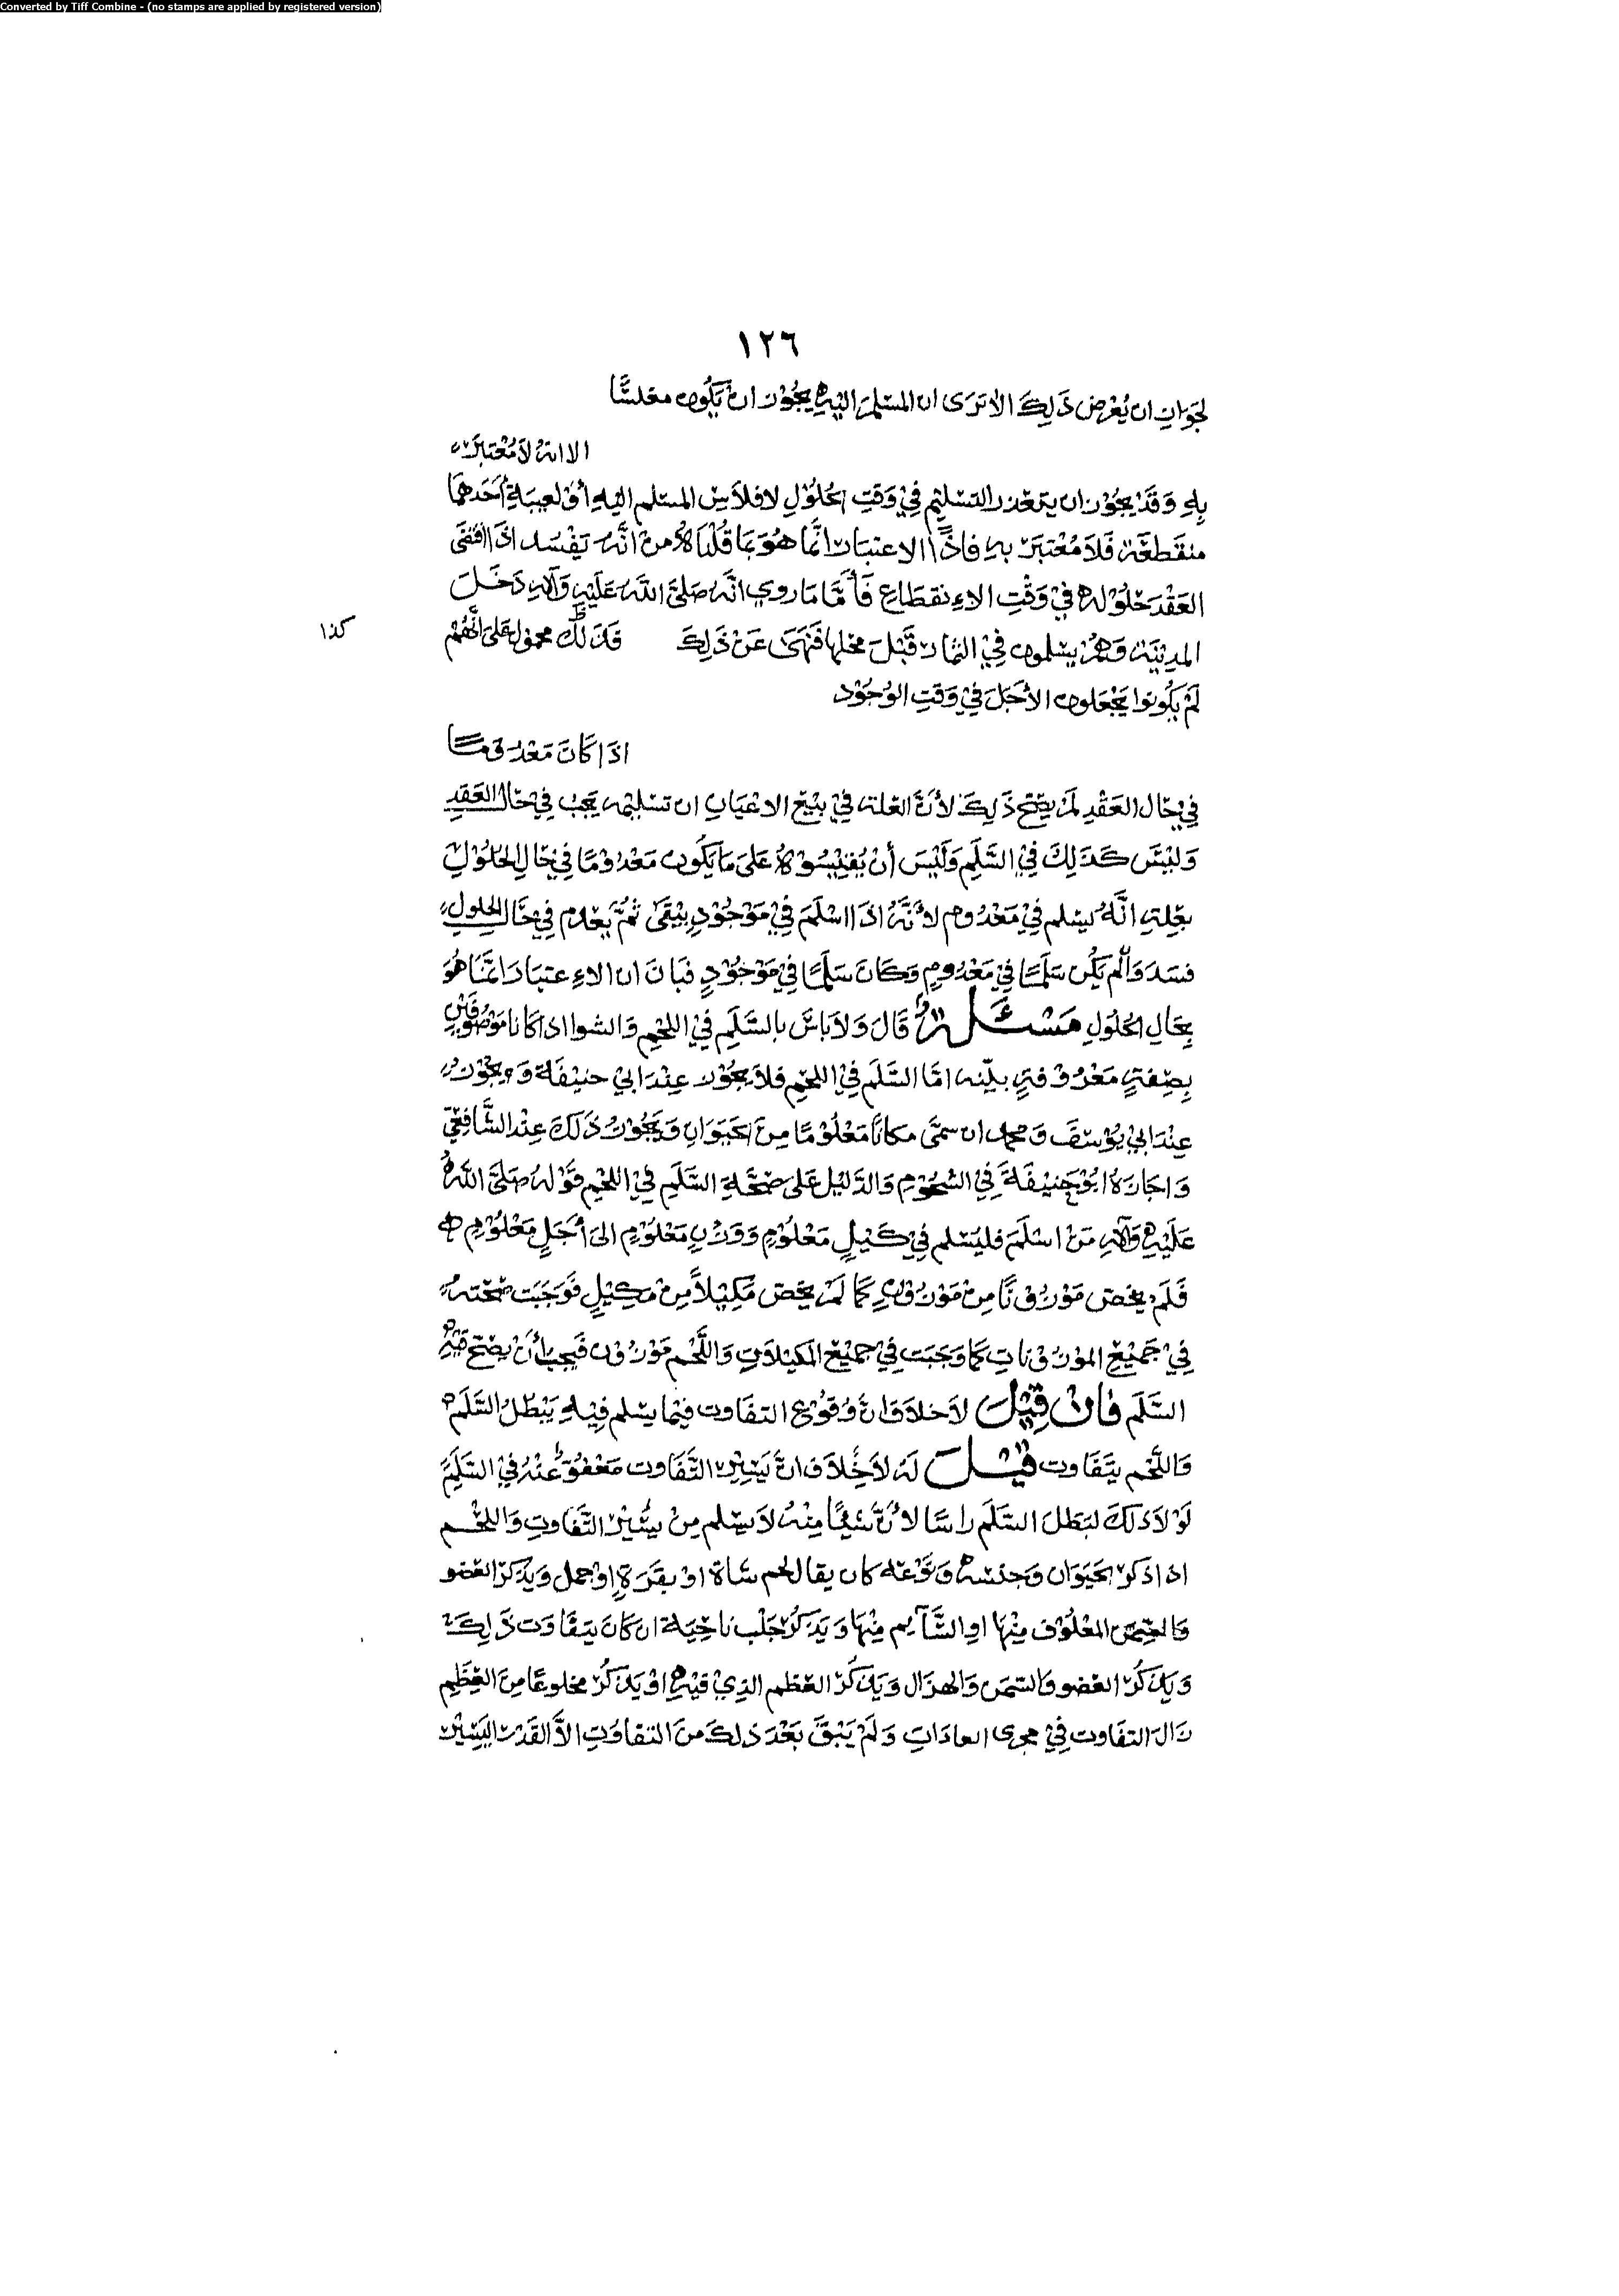 Converted by Tiff Combine - (no stamps are applied by registered version)
١٢٦
لجواز ان يعرض ذَلِكَ الا ترى ان المسلم اليه يجوز ان يكون مفلسًا
الا انه لا معتبر
بِهِ وَقَد يجوز ان يتعذر التسليم في وقتِ الحُلُولِ لافلاسِ المسلم اليه أو لغيبة أحدهما
منقطعة فَلَا مُعْتَبَرَ به فاذًا الاعتبار انَّما هُوَ بما قُلْنَاهُ من انَّه يَفْسُد اذَا اقتضَى
العَقْد حُلُوله في وَقْتِ الاِنقطاعِ فَأَمَّا مَا روي انَّه صَلَّى اللَّه عَلَيْهِ وَآلِهِ دَخَلَ
المدِينَة وَهُمْ يسلمون فِي الثمار قَبْلَ محلها فَنَهَى عَنْ ذَلِكَ فذلك محمول عَلَى انَّهُمْ
كذا
لَمْ يَكُونوا يَجْعَلون الأجَلَ فِي وَقتِ الوُجُوْد
اذَا كَانَ مَعْدُومًا
فِي حَال العَقْدِ لَمْ يَصِحّ ذَلِكَ لأنَّ العلة في بَيْع الاعْيَانِ ان تسليمه يَجِبُ فِي حَال العَقدِ
وَلَيْسَ كَذَلِكَ فِي السَّلَمِ وَلَيْسَ أنْ يُقِيْسُوْهُ عَلَى مَا يَكُون مَعْدُومًا فِي حَالِ الحُلُوْلِ
بعِلةِ انَّهُ يسلم فِي مَعْدُوم لأنَّهُ اذَا اسْلَمَ فِي مَوْجُوْدٍ يبْقَى ثُمَّ يعْدم فِي حَال الحلول
فسَدَ وَالم يَكُن سَلَمًا فِي مَعْدُومٍ وَكَانَ سَلَمًا فِي مَوْجُوْدٍ فبَانَ ان الاِعتبَارَ انَّمَا هُوَ
بِحَال الحُلولِ مَسْئلة قَالَ وَلَا بَاسَ بالسَّلَمِ فِي اللحْمِ وَالشوا اذا كانا مَوْصُوْفَيْنِ
بِصِفَةٍ مَعْرُوْفةٍ بيّنه امَّا السَّلَم فِي اللحْمِ فلا يجُوْز عِنْدَ ابي حنيْفَة وَيجُوْز
عِنْدَ ابِي يُوْسفَ وَمحمد ان سمَّى مكانًا مَعْلُوْمًا مِنَ الحَيَوَانِ وَيَجُوْزُ ذَلكَ عِنْد الشَّافِعِيّ
وَاجَازَهُ ابُوْ حَنِيْفَةَ فِي الشحُوْمِ وَالدَّلِيْل عَلَى صحَّةِ السَّلَمِ فِي اللحْمِ قَوْله صَلَّى اللَّهُ
عَلَيْهِ وَآلِهِ مَنْ اسْلَمَ فليُسْلم في كَيْلٍ مَعْلُوْمٍ وَوَزْنٍ مَعْلُوْمٍ الَى أَجَلٍ مَعْلُوْمٍ
فَلَم يخص مَوْزُوْنًا مِنْ مَوْزُوْنٍ كَمَا لَمْ يخص مَكِيْلاً مِنْ مَكِيْلٍ فَوَجَبَت صحّته
فِي جَمِيْعِ الموْزُوْنَاتِ كَمَا وَجَبَت فِي جميْع المَكيْلَاتِ وَاللَّحْم مَوْزُوْن فَيَجب أَنْ يصحّ فيه
السَّلَم فَان قِيْلَ لاَ خلافَ ان وُقُوْع التفَاوت فيْما يسلم فِيْهِ يَبْطُلُ السَّلَم
وَاللَّحم يتَفَاوت قيْلَ لَهُ لاَ خِلاَف انَّ يَسِيْر التَّفَاوت مَعْفُوّ عنْهُ فِي السَّلَمِ
لَوْلَا ذلكَ لبَطَلَ السَّلَم رأسًا لأنَّ شَيْئًا مِنْهُ لاَ يسْلم مِنْ يسِيْر التَّفاوتِ وَاللحْم
اذا ذكر الحَيَوَان وَجنسه وَنَوْعه كان يقال لحم شاة اوْ بقَرَةٍ اوْ جمل وَيذكر العضو
وَالسمين المعْلُوْف مِنْهَا اوِ السَّآيم مِنْهَا وَيَذكر جَلْب نَاحِيَة ان كَانَ يتفَاوت ذَلِكَ
وَيذكُر العضو وَالسّمَن وَالهزَال وَيَذكُر العَظم الذِيْ فيْهِ اوْ يَذكُر مخلوعًا مِنَ العِظَمِ
زَال التفَاوت فِي مجرى العادَاتِ وَلَمْ يَبْقَ بَعْدَ ذلكَ مِنَ التفاوُتِ الاَّ القَدْر اليَسِيْر